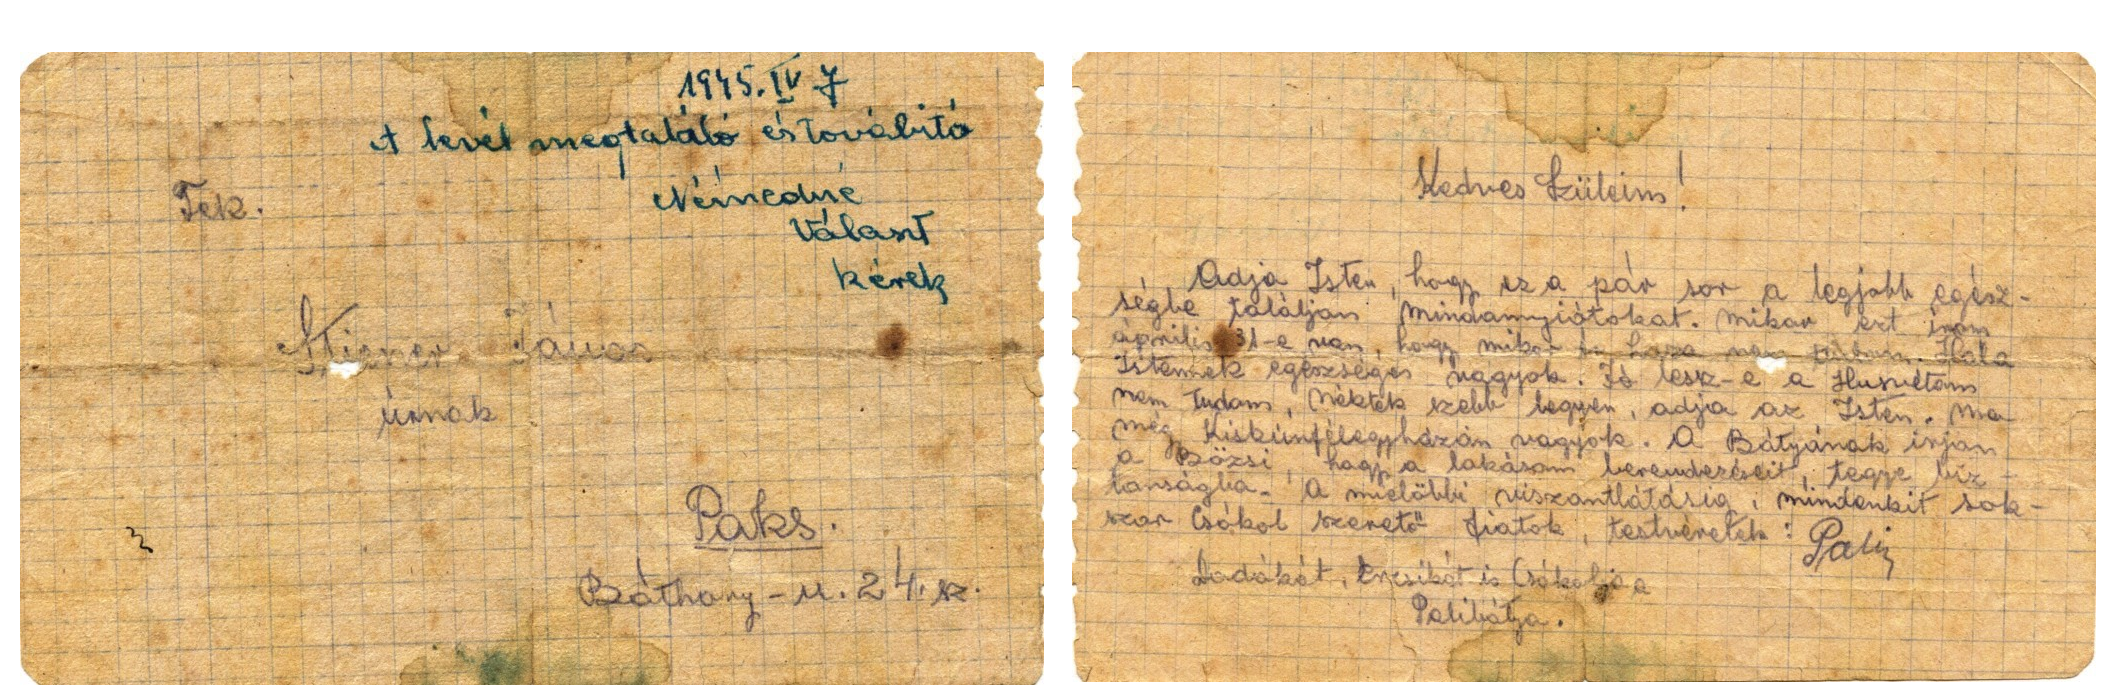 1945. IV 7
A levél megtaláló és továbitó
Némedné
Választ
kérek
Tek.
János
úrnak
Paks.
Báthory-u. 24. sz.
Kedves Szüleim!
Adja Isten, hogy ez a pár sor a legjobb egész-
ségbe találjan mindannyiótokat. Mikor ezt irom
április 31-e van, hogy mikor haza nem tudom. Hála
Istennek egészséges vagyok. Jó lesz-e a Husvétom
nem tudom, Néktek szebb legyen, adja az Isten. Ma
még Kiskúnfélegyházán vagyok. A Bátyának irjon
a Bözsi, hogy a lakásom berendezéseit tegye biz-
tonságba. A mielöbbi viszontlátásig, mindenkit sok-
szor Csókol szerető fiatok, testvéretek: Pali
Dodókát, Encsikét is Csókolja a
Palibátja.